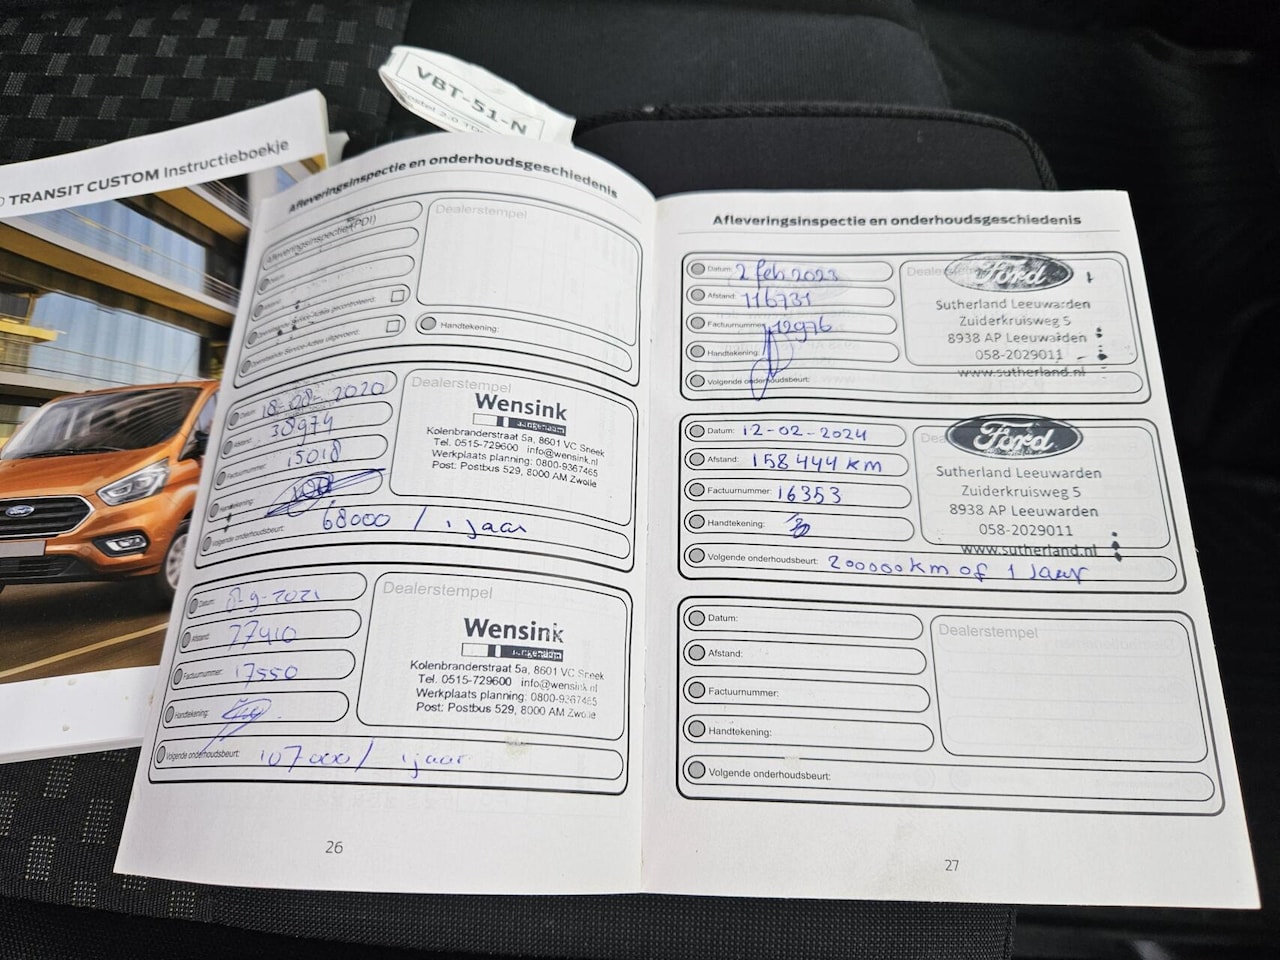 VBT-51-N
TRANSIT CUSTOM Instructieboekje
Ford
Afleveringsinspectie en onderhoudsgeschiedenis
Afleveringsinspectie (PDI)
Dealerstempel
Handtekening:
Datum: 18-08-2020
Afstand: 38974
Factuurnummer: 15018
Handtekening:
Volgende onderhoudsbeurt: 68000 / 1 jaar
Dealerstempel
Wensink
Kolenbranderstraat 5a, 8601 VC Sneek
Tel. 0515-729600 info@wensink.nl
Werkplaats planning: 0800-9367465
Post: Postbus 529, 8000 AM Zwolle
Datum: 9-2021
Afstand: 77410
Factuurnummer: 17550
Handtekening:
Volgende onderhoudsbeurt: 107000 / 1 jaar
Dealerstempel
Wensink
Kolenbranderstraat 5a, 8601 VC Sneek
Tel. 0515-729600 info@wensink.nl
Werkplaats planning: 0800-9367465
Post: Postbus 529, 8000 AM Zwolle
26
Afleveringsinspectie en onderhoudsgeschiedenis
Datum: 2 feb 2023
Afstand: 116731
Factuurnummer: 12976
Handtekening:
Volgende onderhoudsbeurt:
Ford
Sutherland Leeuwarden
Zuiderkruisweg 5
8938 AP Leeuwarden
058-2029011
www.sutherland.nl
Datum: 12-02-2024
Afstand: 158444 km
Factuurnummer: 16353
Handtekening:
Volgende onderhoudsbeurt: 200000 km of 1 Jaar
Ford
Sutherland Leeuwarden
Zuiderkruisweg 5
8938 AP Leeuwarden
058-2029011
www.sutherland.nl
Datum:
Afstand:
Factuurnummer:
Handtekening:
Volgende onderhoudsbeurt:
Dealerstempel
27